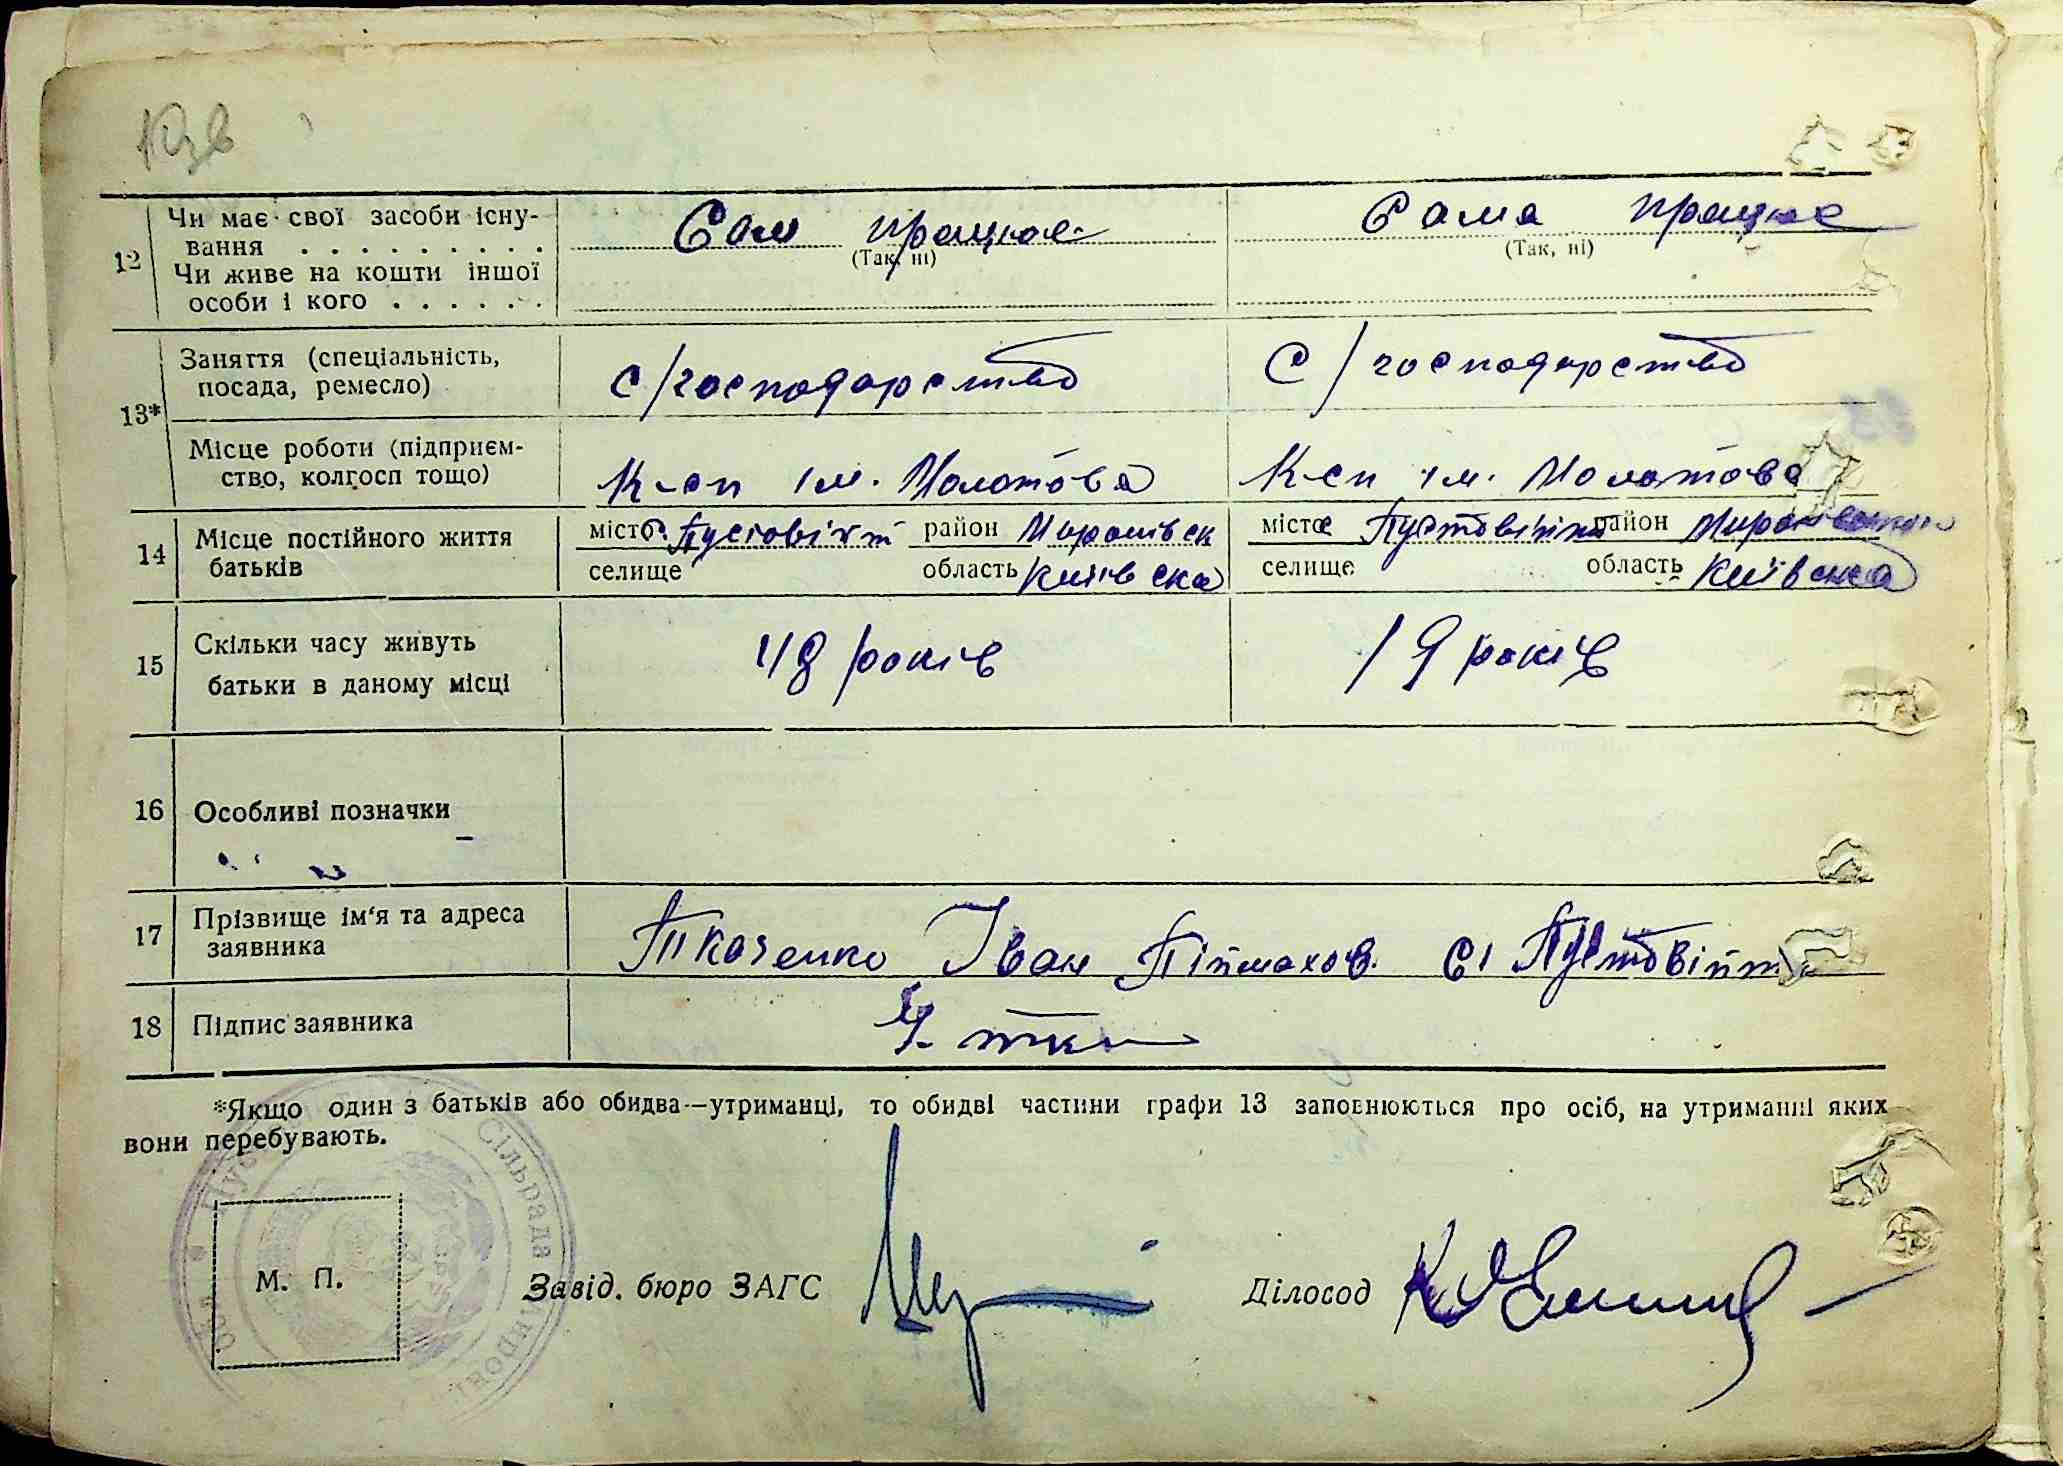 12 Чи має свої засоби існу-
вання . . . . . . . . . Сам працює Сама працює
(Так, ні) (Так, ні)
Чи живе на кошти іншої
особи і кого . . . . . .
Заняття (спеціальність,
посада, ремесло) с/господарство с/господарство
13*
Місце роботи (підприєм-
ство, колгосп тощо) К-сп ім. Молотова К-сп ім. Молотова
14 Місце постійного життя місто с. Пустовіти район Миронівск місто с Пустовіти район
батьків селище область Київська селище область Київська
15 Скільки часу живуть 48 років 19 років
батьки в даному місці
16 Особливі позначки
17 Прізвище ім'я та адреса
заявника Ткаченко Іван с. Пустовіти
18 Підпис заявника
*Якщо один з батьків або обидва—утриманці, то обидві частини графи 13 заповнюються про осіб, на утриманні яких
вони перебувають.
Сільрада
М. П. Завід. бюро ЗАГС Діловод